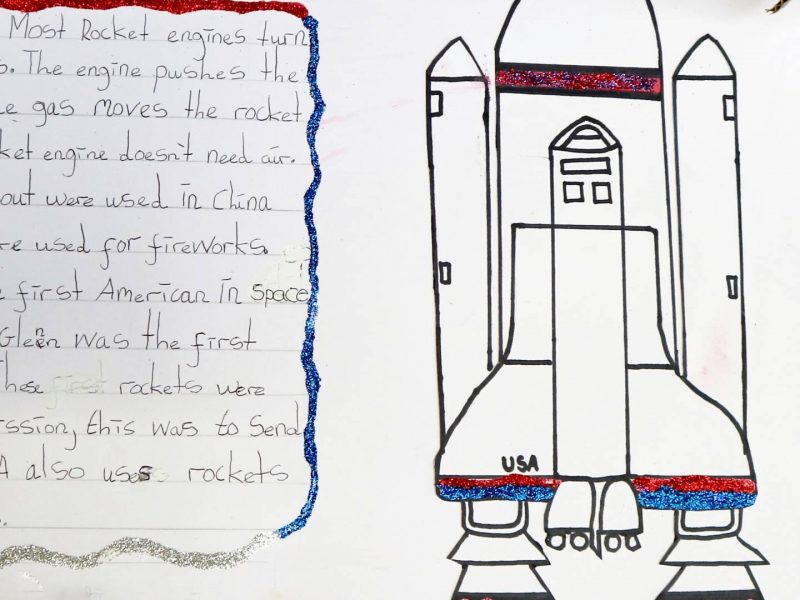 Most Rocket engines turn
. The engine pushes the
gas moves the rocket
ket engine doesn't need air.
out were used in China
re used for fireworks.
first American in space
Glenn was the first
hese first rockets were
ssion, this was to send
A also uses rockets
USA